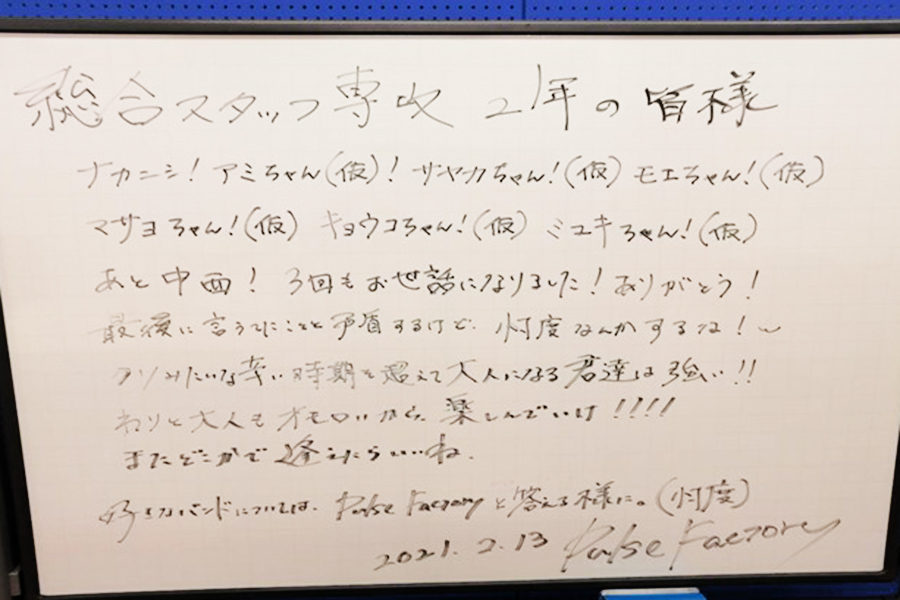 総合スタッフ専攻 21年の皆様
ナカニシ! アミちゃん(仮)! サヤカちゃん!(仮) モエちゃん!(仮)
マサヨちゃん!(仮) キョウコちゃん!(仮) ミユキちゃん!(仮)
あと中西! 3回もお世話になりました! ありがとう!
最後に言うてたことと矛盾するけど、忖度なんかするな!
クソみたいな辛い時期を超えて大人になる君達は強い!!
わりと大人もオモロいから、楽しんでいけ!!!!
またどこかで逢えたらいいね.
好きなバンドについては、Pulse Factoryと答える様に。(忖度)
2021.2.13 Pulse Factory